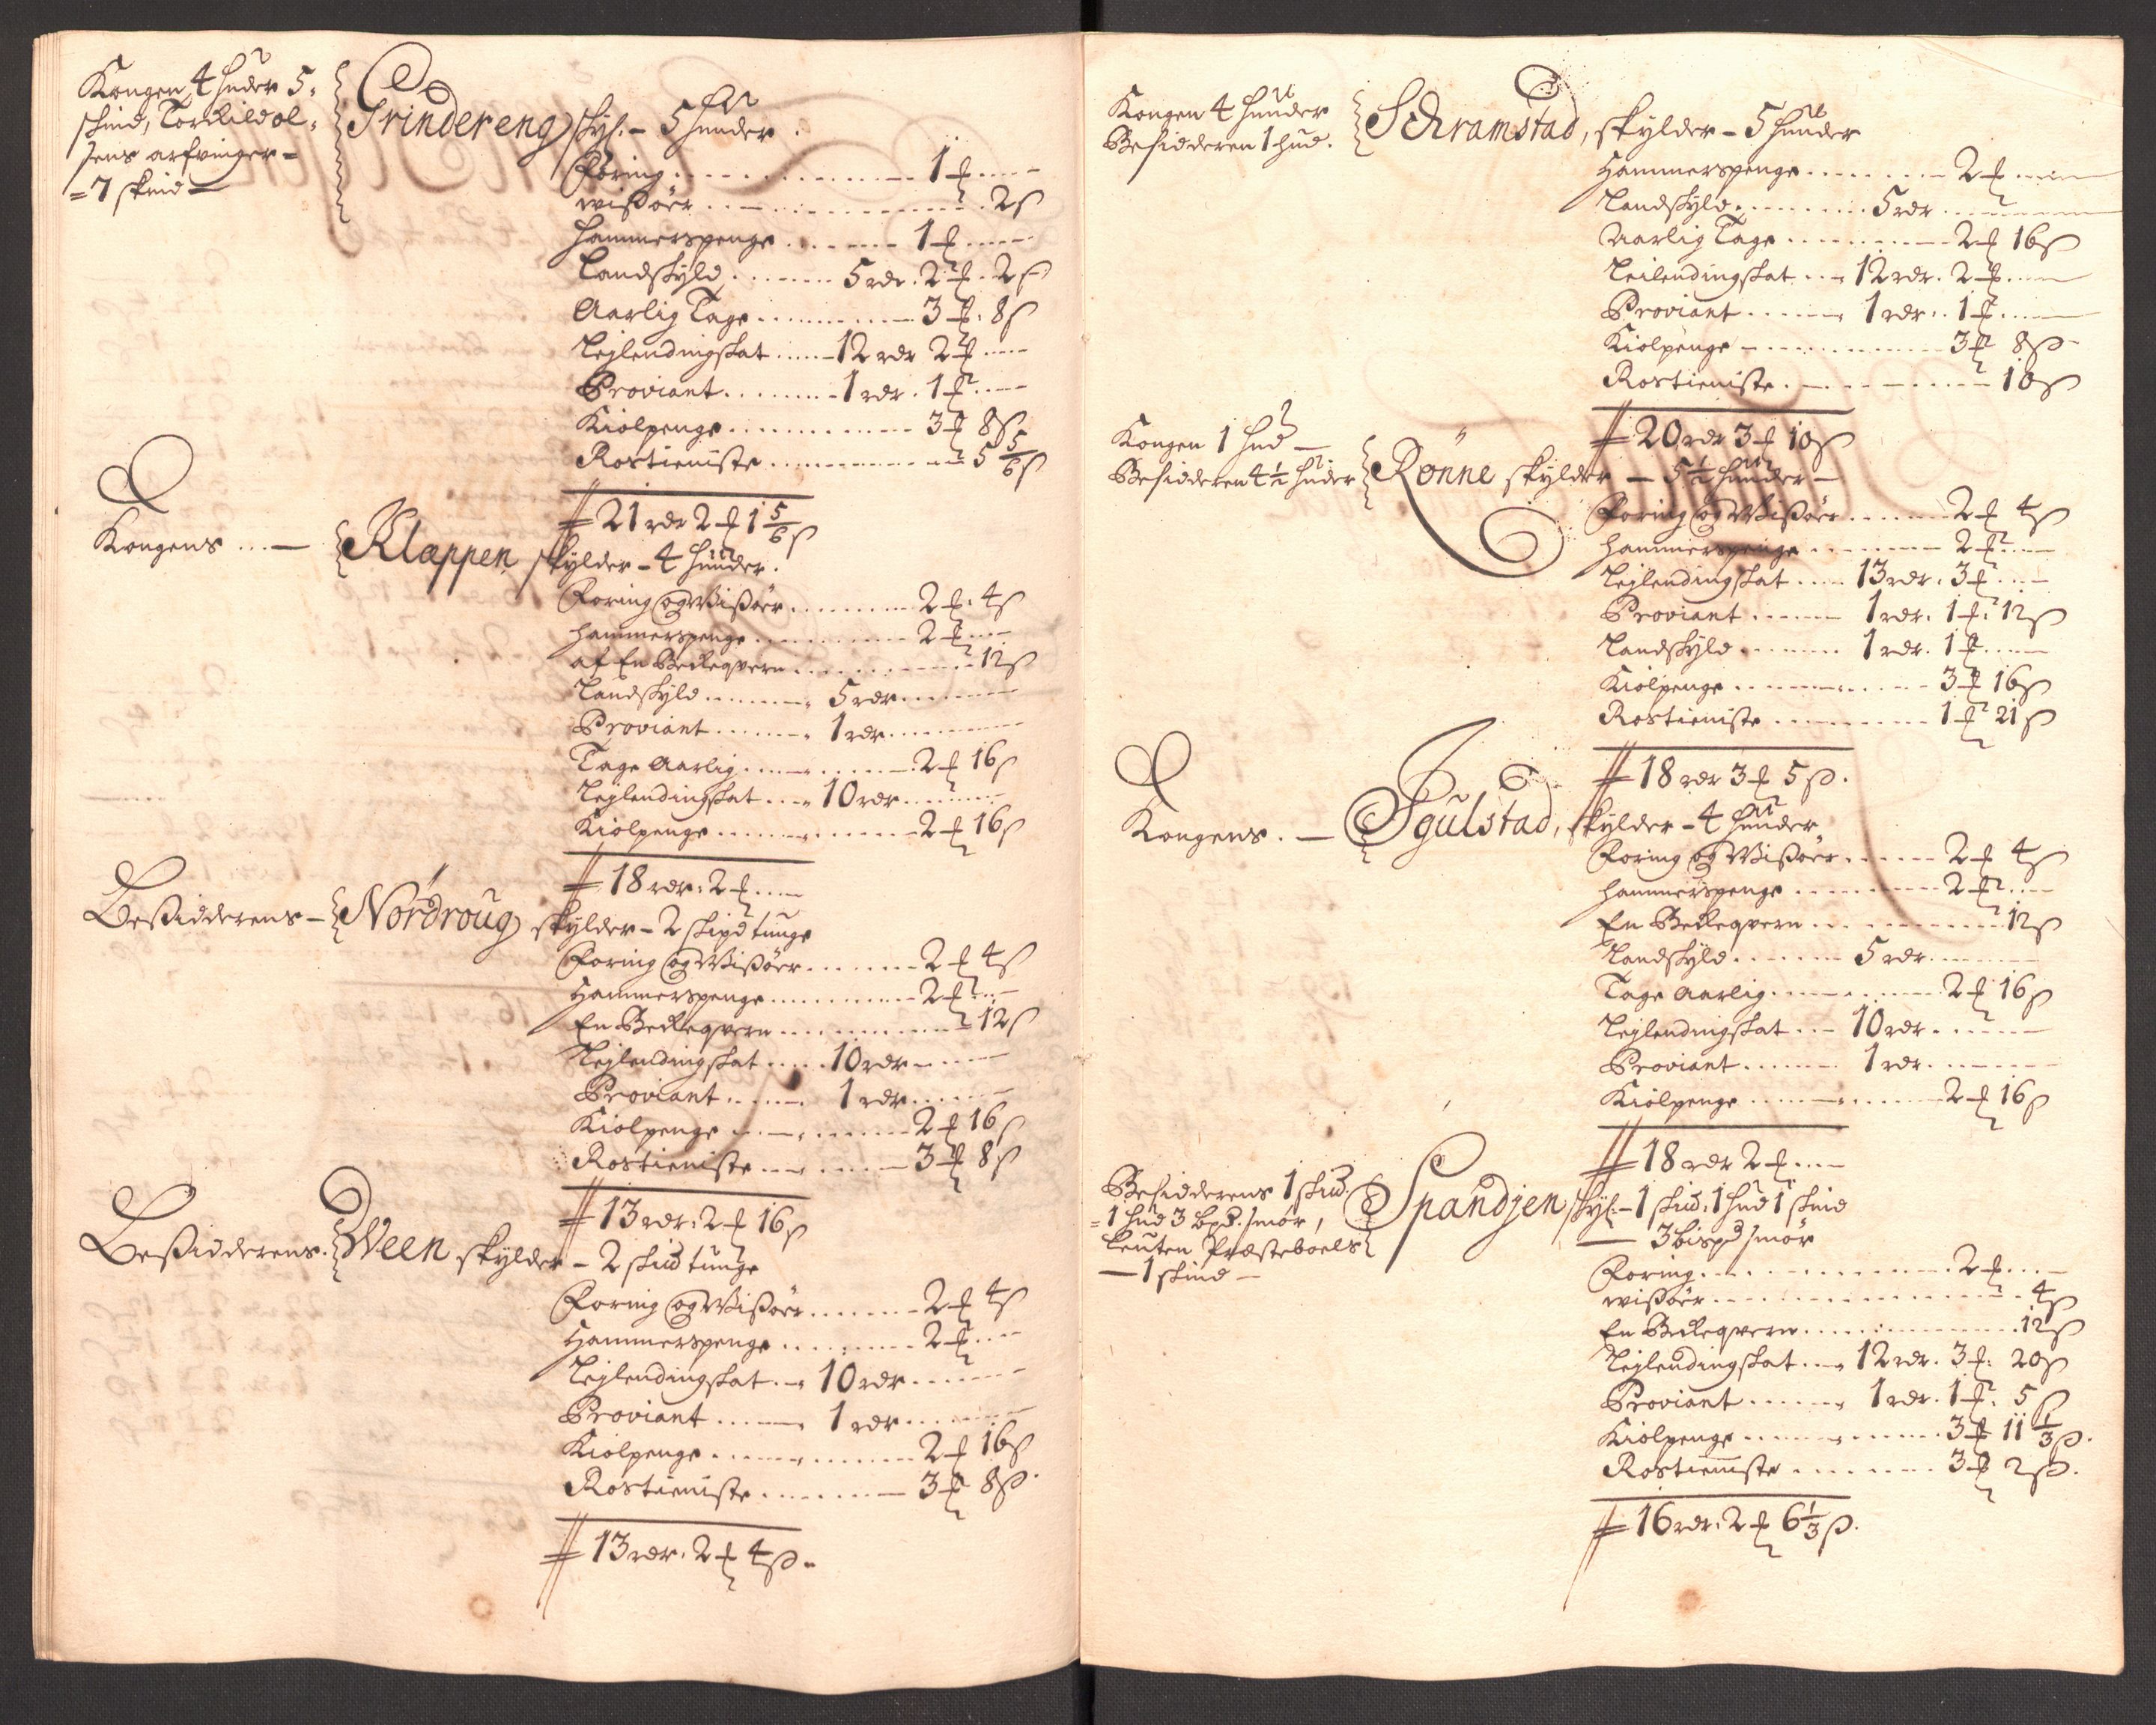 Kongen 4 huder 5
skind, Torkild ol=
sens arfvinger =
= 7 skind —
Grindereng skyl: – 5 huuder.
Foring ........ 1 ƒ ....
wißöer ........ 2 s
Hammerspenge ....... 1 ƒ ....
Landskyld ....... 5 rdr. 2 ƒ. 2 s
Aarlig Tage ........ 3 ƒ. 8 s
Lejlendingskat ..... 12 rdr 2 ƒ ....
Proviant ........ 1 rdr. 1 ƒ ....
Kiolpenge ........ 3 ƒ 8 s
Rostieniste ........ 5 5/6 s
21 rdr 2 ƒ 1 5/6 s
Kongens ... —
Klæppen, skylder – 4 huuder.
Foring og Wißöer ....... 2 ƒ. 4 s
Hammerspenge ........ 2 ƒ ....
af En Beckeqvern ........ 12 s
Landskyld ....... 5 rdr .......
Proviant ....... 1 rdr .......
Tage Aarlig ....... 2 ƒ 16 s
Lejlendingskat .... 10 rdr .......
Kiolpenge ........ 2 ƒ 16 s
18 rdr: 2 ƒ ....
Beßidderens –
Nordroug skylder – 2 skipd tunge
Foring og Wißöer ....... 2 ƒ 4 s
Hammerspenge ........ 2 ƒ ....
En Beckeqvern ........ 12 s
Lejlendingskat ..... 10 rdr ......
Proviant ...... 1 rdr ......
Kiolpenge ........ 2 ƒ 16 s
Rostieniste ....... 3 ƒ 8 s
13 rdr: 2 ƒ 16 s
Beßidderens.
Ween skylder – 2 skud tunge
Foring og Wißöer ....... 2 ƒ 4 s
Hammerspenge ....... 2 ƒ ....
Lejlendingskat ... 10 rdr .......
Proviant ...... 1 rdr .......
Kiolpenge ........ 2 ƒ 16 s
Rostieniste ....... 3 ƒ 8 s
13 rdr. 2 ƒ 4 s
Kongen 4 huuder
Besidderen 1 hud.
Schramstad, skylder – 5 huuder
Hammerspenge ....... 2 ƒ ....
Landskyld ........ 5 rdr .......
Aarlig Tage ........ 2 ƒ 16 s
Leilendingskat ... 12 rdr. 2 ƒ ....
Proviant ...... 1 rdr. 1 ƒ ....
Kiolpenge ........ 3 ƒ 8 s
Rostieniste ........ 10 s
20 rdr 3 ƒ 10 s
Kongen 1 hud —
Besidderen 4 1/2 huder
Rønne skylder – 5 1/2 huuder —
Foring og Wißöer ...... 2 ƒ 4 s
Hammerspenge ....... 2 ƒ ....
Lejlendingskat .... 13 rdr. 3 ƒ ....
Proviant ...... 1 rdr. 1 ƒ. 12 s
Landskyld ....... 1 rdr. 1 ƒ ....
Kiolpenge ........ 3 ƒ 16 s
Rostieniste ........ 1 ƒ 21 s
18 rdr 3 ƒ 5 s.
Kongens. —
Igulstad, skylder – 4 huuder
Foring og Wißöer ...... 2 ƒ 4 s
Hammerspenge ........ 2 ƒ ....
En Beckeqvern ........ 12 s
Landskyld ....... 5 rdr .......
Tage Aarlig ........ 2 ƒ 16 s
Lejlendingskat ... 10 rdr .......
Proviant ....... 1 rdr .......
Kiolpenge ........ 2 ƒ 16 s
18 rdr 2 ƒ ....
Besidderens 1 skud.
= 1 hud 3 bpd. smör,
Leuten Præsteboels
— 1 skind —
Spandjen skyl: – 1 skud: 1 hud 1 skind
— 3 bispd smör
Foring ........ 2 ƒ ....
wißöer ........ 4 s
En Beckeqvern ........ 12 s
Lejlendingskat ... 12 rdr. 3 ƒ: 20 s
Proviant ...... 1 rdr. 1 ƒ: 5 s
Kiolpenge ........ 3 ƒ 11 1/3 s.
Rostieniste ....... 3 ƒ 2 s.
16 rdr. 2 ƒ 6 1/3 s.